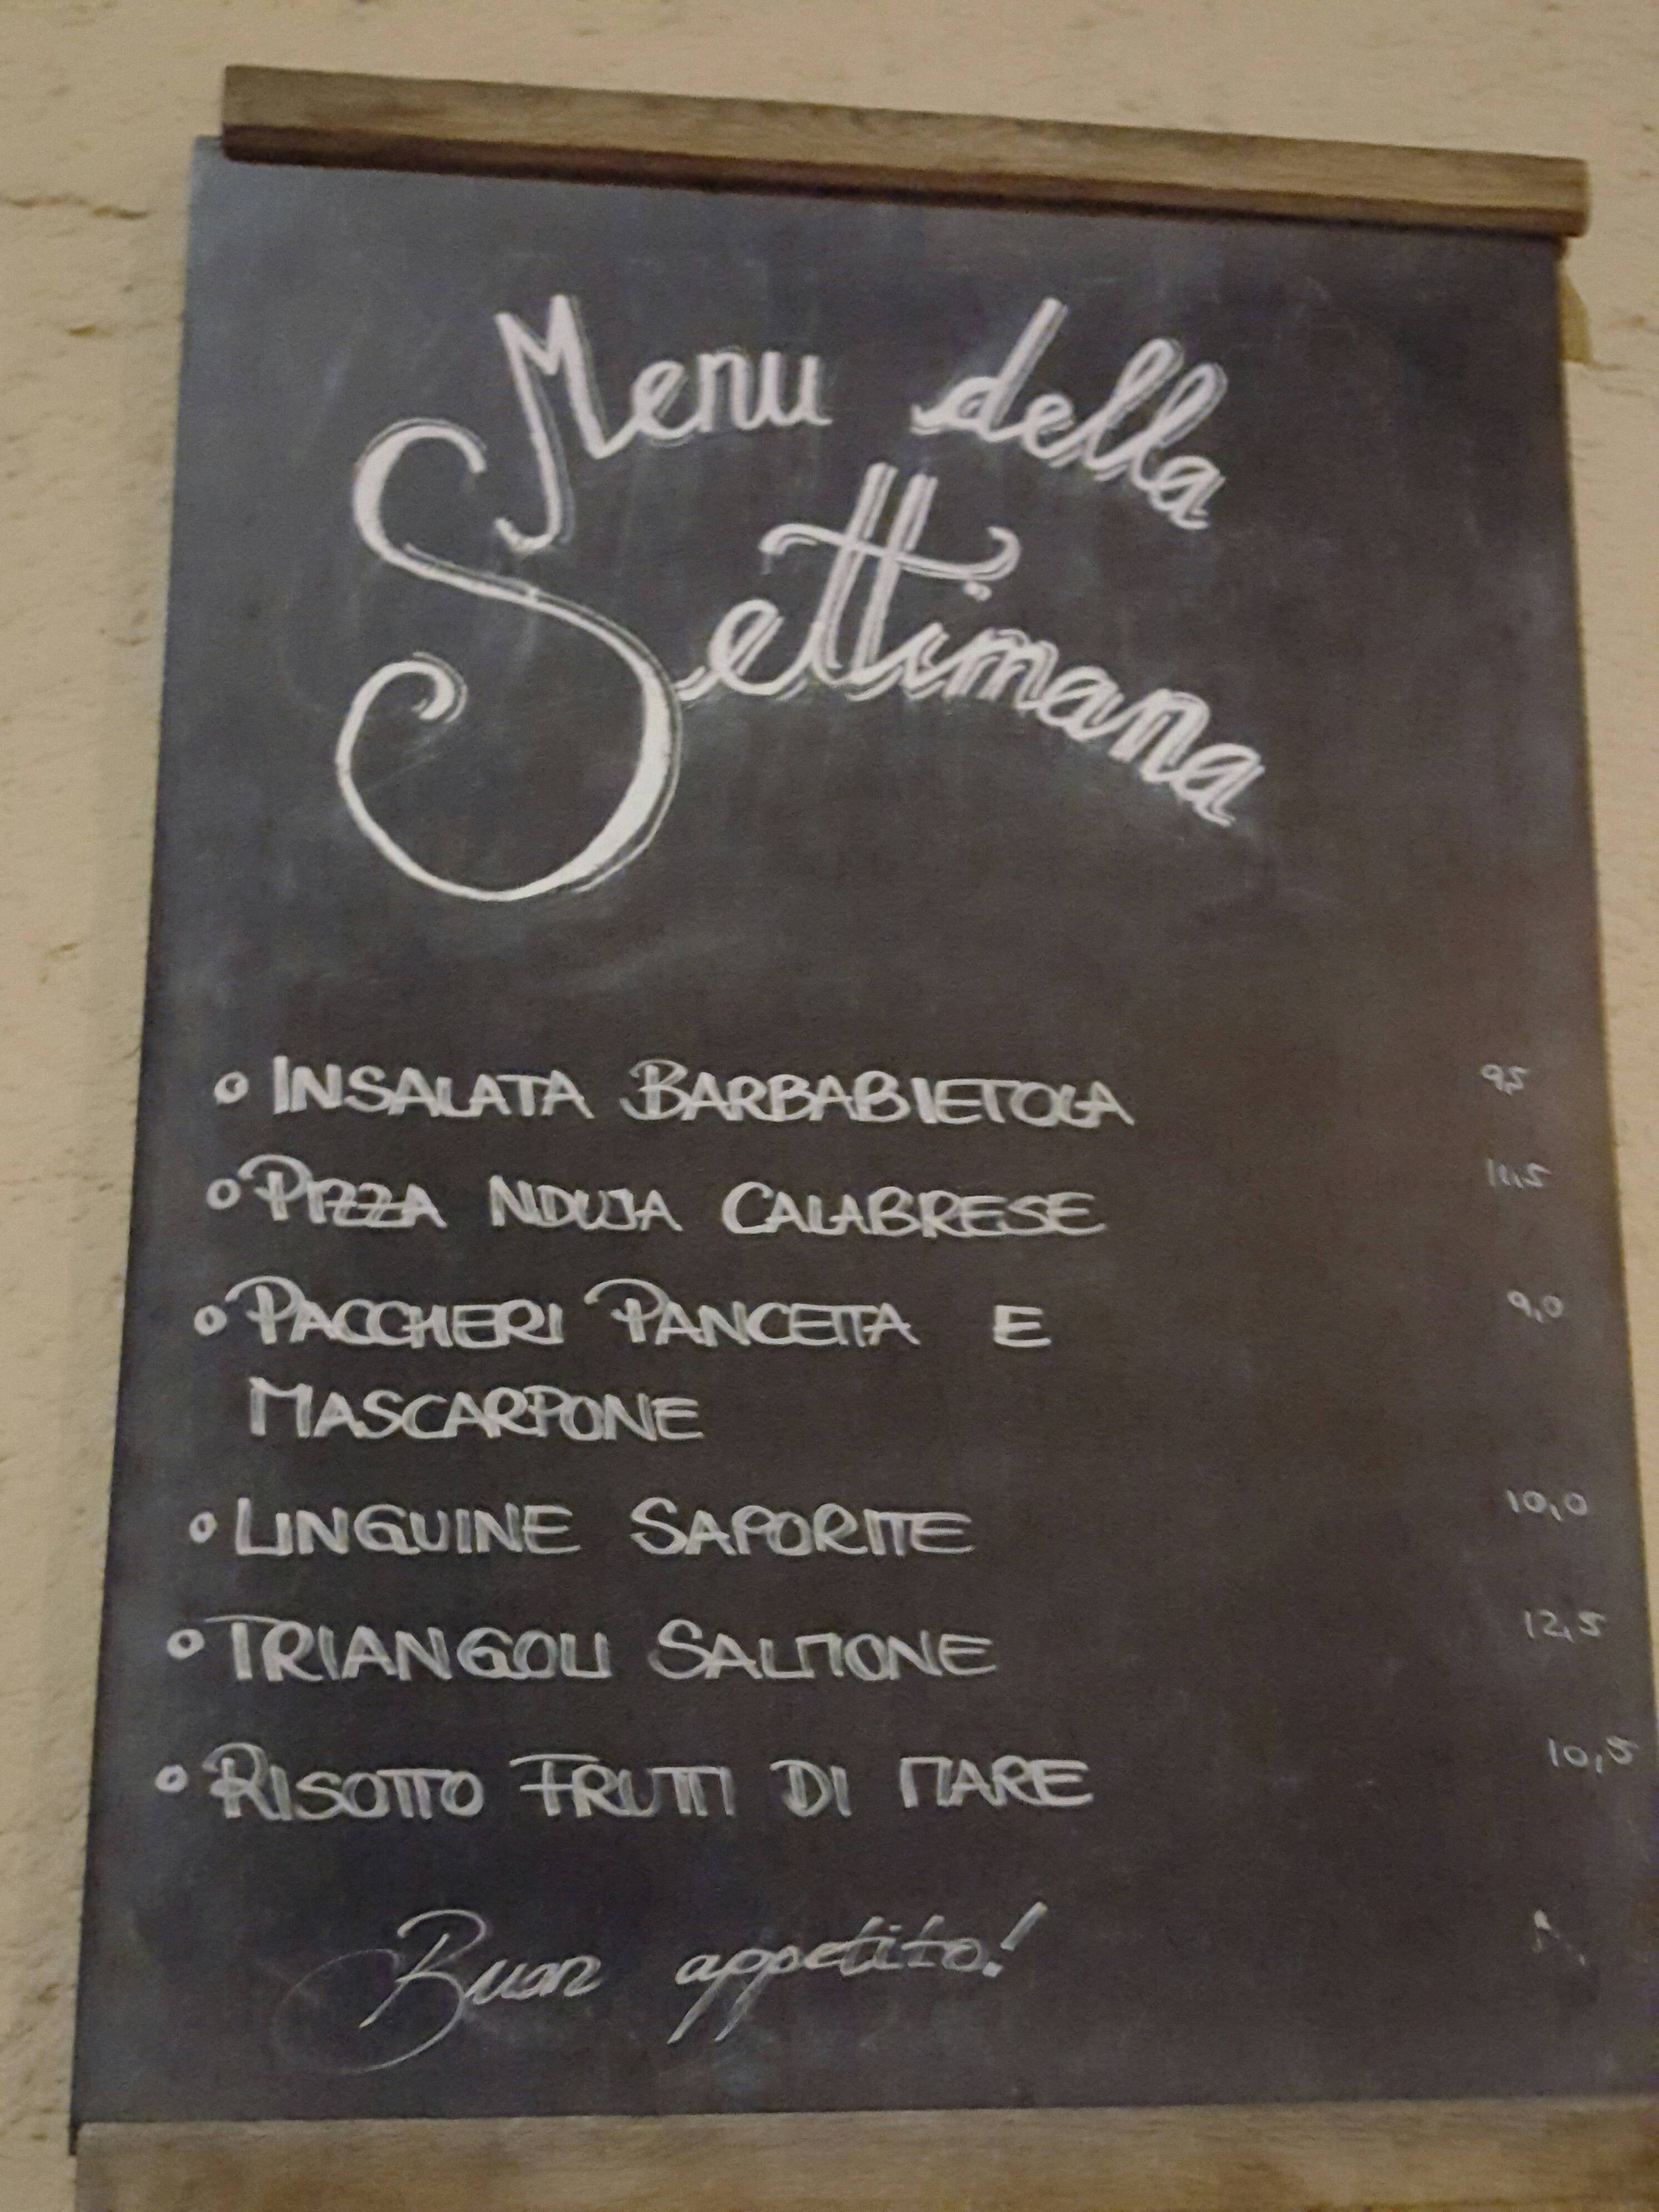 Menu della
Settimana
INSALATA BARBABIETOLA 9,5
PIZZA NDUJA CALABRESE
PACCHERI PANCETTA E 9,0
MASCARPONE
LINGUINE SAPORITE 10,0
TRIANGOLI SALMONE 12,5
RISOTTO FRUTTI DI MARE 10,5
Buon appetito!